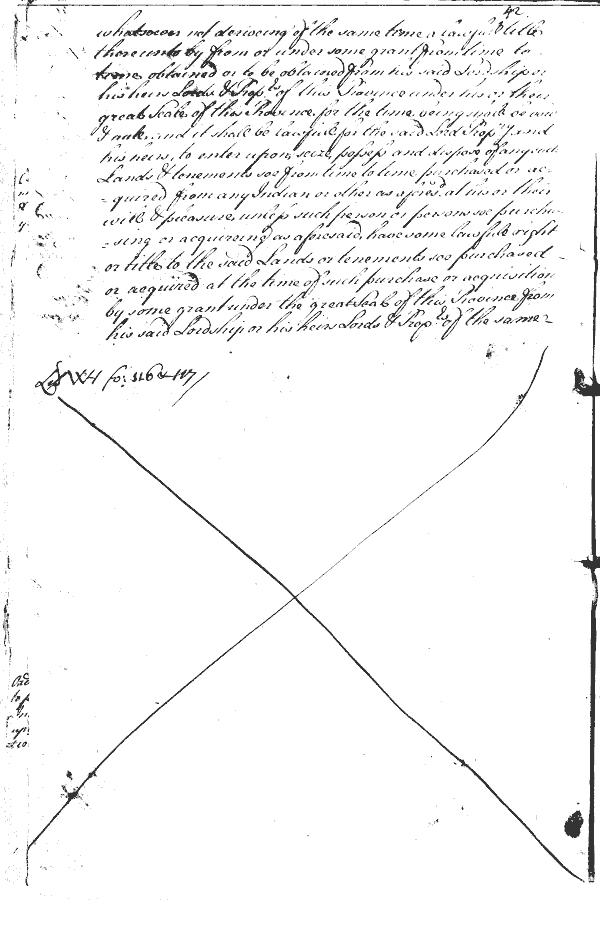 42
whatsoever not deriveing of the same time a lawfull title
thereunto by from or under some grant from time to
time obtained or to be obtained from his said Lordship or
his heirs Lords & Prop.rs of this Province under his or their
great Seale of this Province for the time being shall be
& null. and it shall be lawfull for the said Lord Prop.ry and
his heirs, to enter upon, seize, possess and dispose of any such
Lands & tenements soe from time to time purchased or ac-
-quired from any Indian or other as aforesd. at his or their
will & pleasure, unless such person or persons soe purcha-
-sing or acquireing as aforesaid, have some lawfull right
or title to the said Lands or tenements soe purchased
or acquired at the time of such purchase or acquisition
by some grant under the great Seale of this Province from
his said Lordship or his heirs Lords & Prop.rs of the same
Lib WH fo: 116 & 117